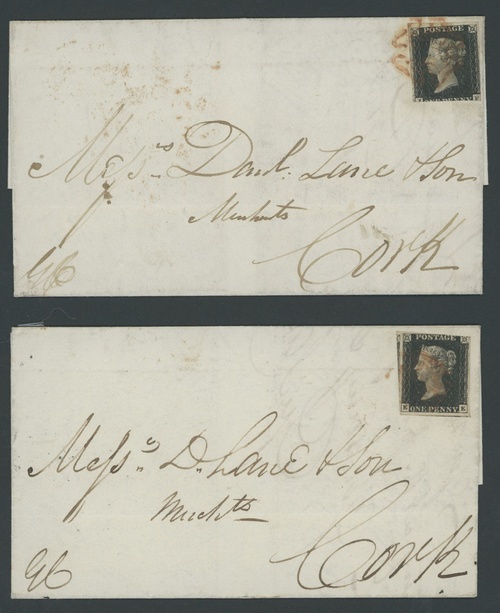 POSTAGE
ONE PENNY
Messrs. Danl. Lane & Son
Merchts
Cork
POSTAGE
K ONE PENNY K
Messrs. D. Lane & Son
Merchts
Cork